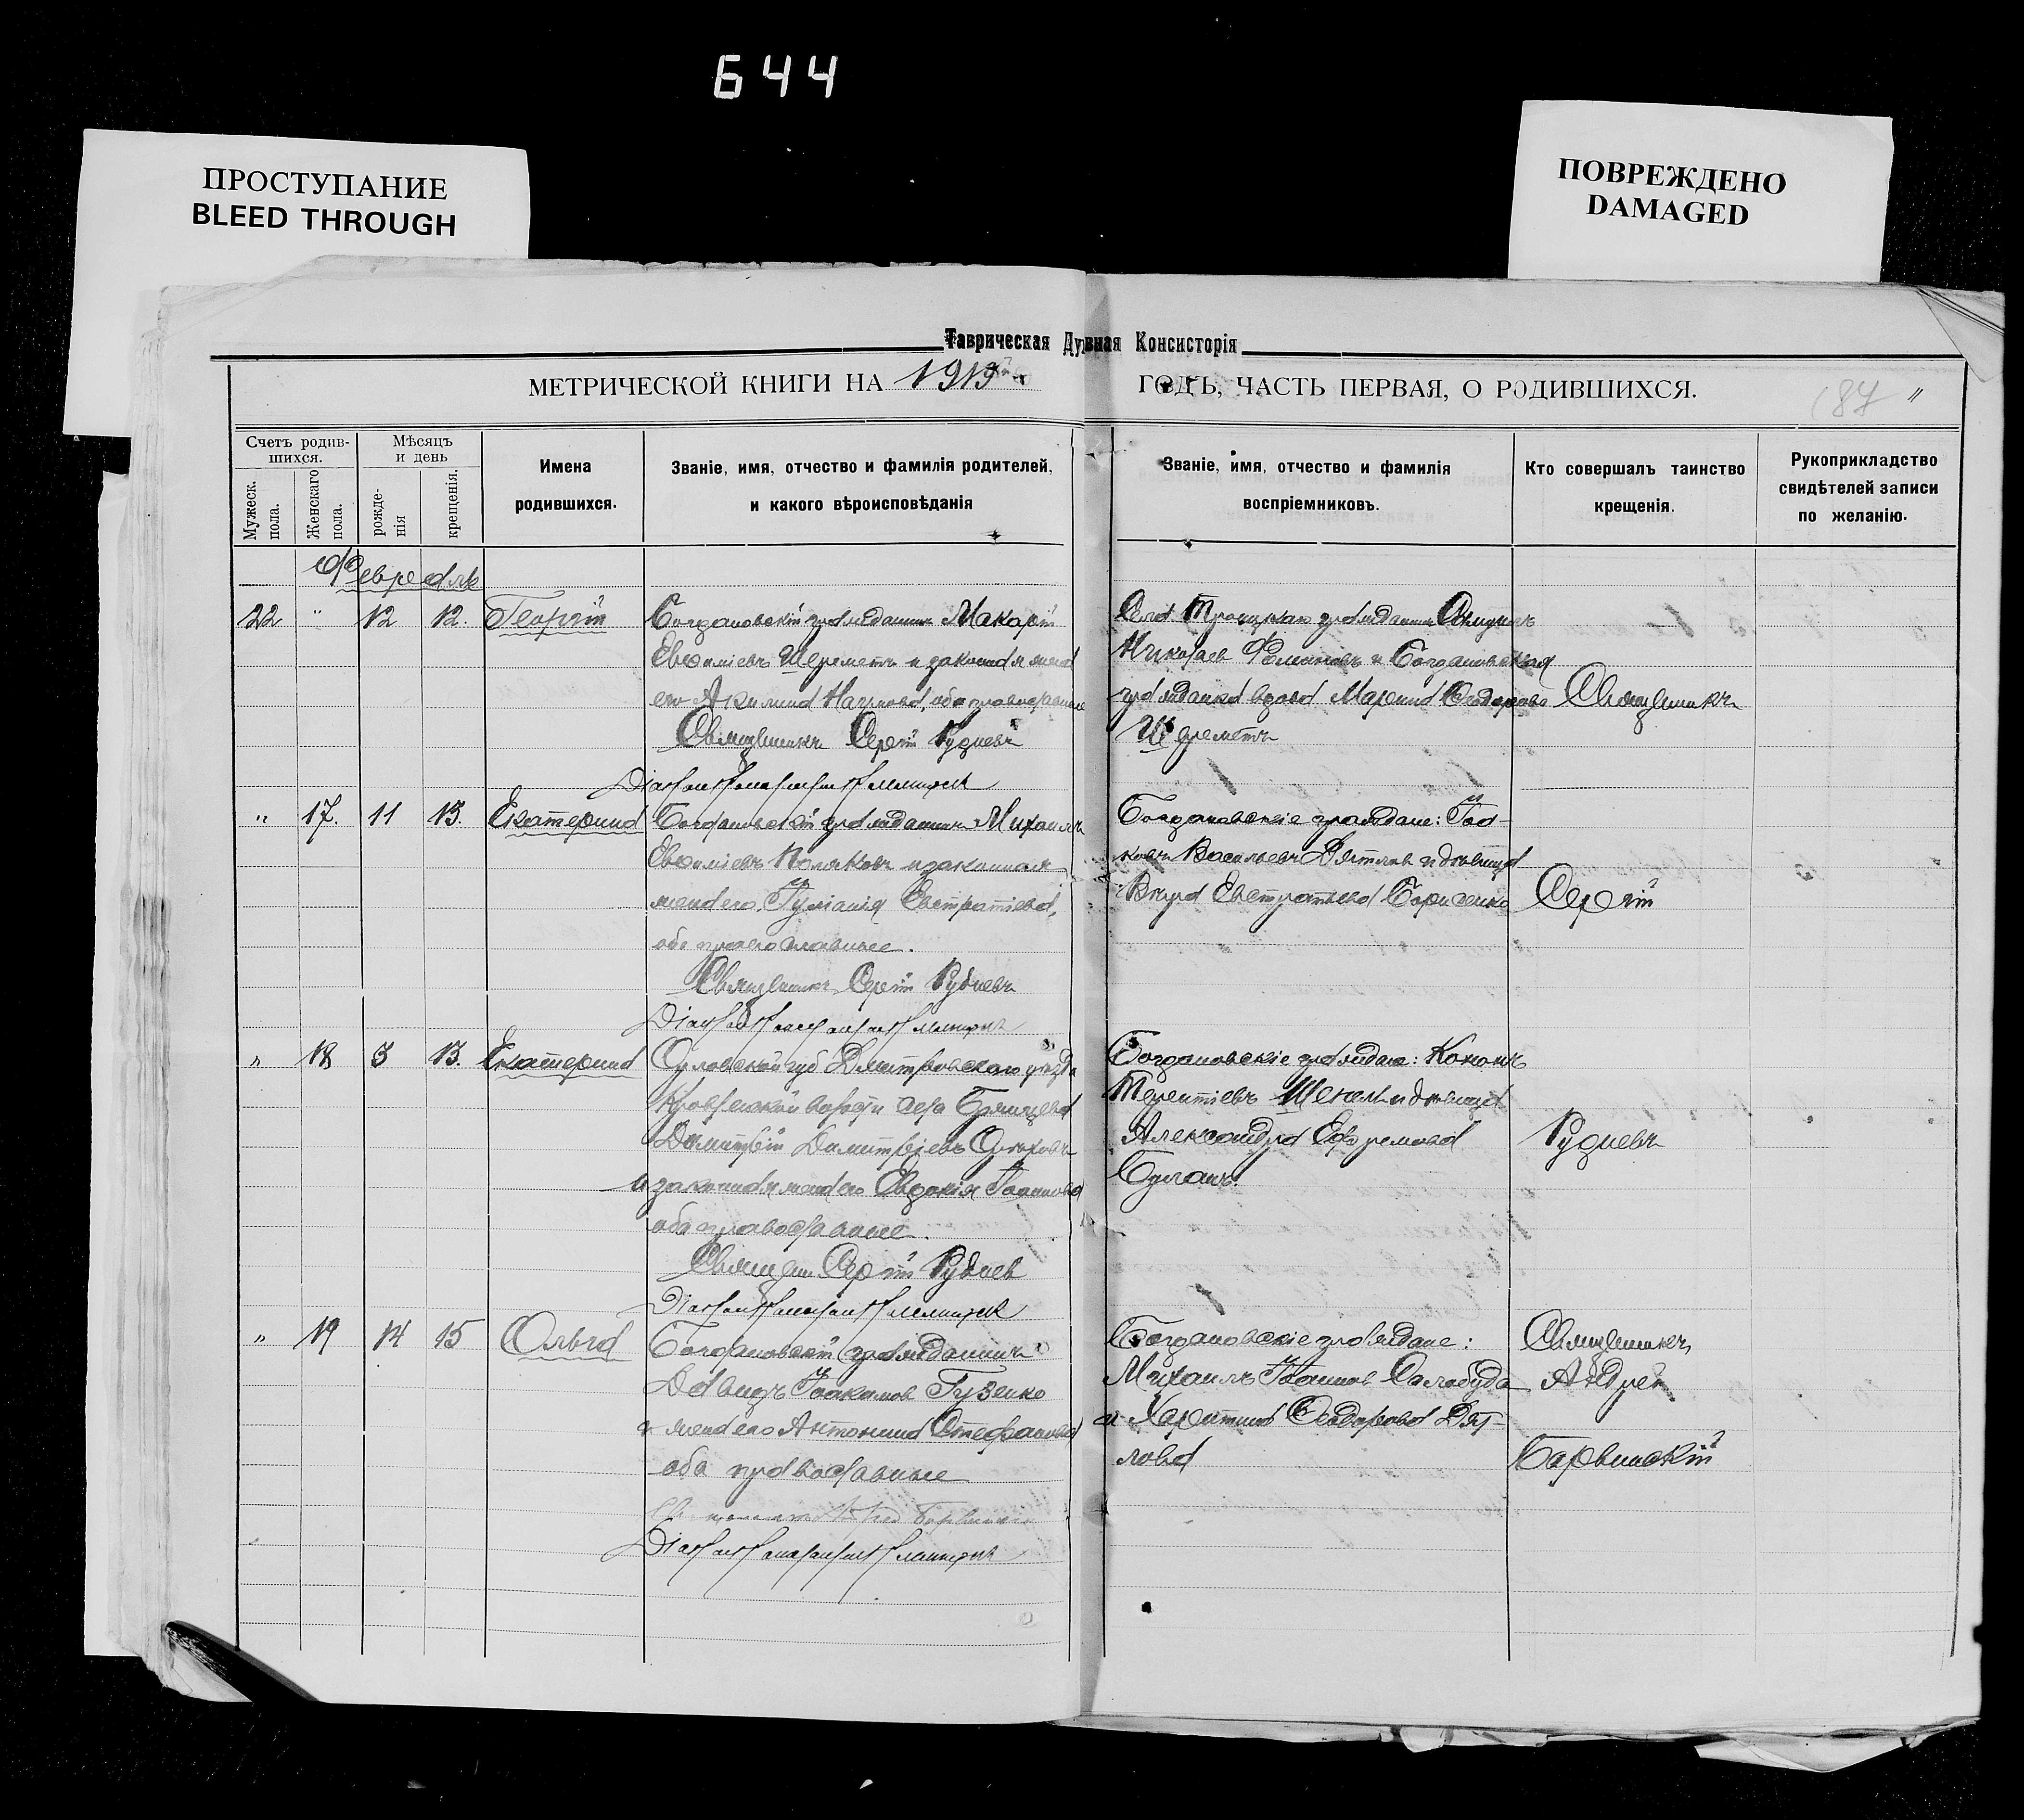 644
ПРОСТУПАНИЕ
BLEED THROUGH
ПОВРЕЖДЕНО
DAMAGED
Таврическая Духвная Консисторія
МЕТРИЧЕСКОЙ КНИГИ НА 1919 ГОДЪ, ЧАСТЬ ПЕРВАЯ, О РОДИВШИХСЯ.
187 "
Счетъ родив-
шихся.
Мужеск.
пола.
Женскаго
пола.
Мѣсяцъ
и день
рожде-
нія
крещенія.
Имена
родившихся.
Званіе, имя, отчество и фамилія родителей,
и какого вѣроисповѣданія
Званіе, имя, отчество и фамилія
воспріемниковъ.
Кто совершалъ таинство
крещенія.
Рукоприкладство
свидѣтелей записи
по желанію.
Февраль
22 " 12 12. Георгій
Богдановскій гражданинъ Макарій
Евфиміевъ Шереметъ и законная жена
его Акилина Наумова, оба православные
Священникъ Сергій Рудневъ
Села Троицкаго гражданинъ
Николаев и Богдановская
гражданка вдова Марина Феодорова
Шереметъ
Священникъ
" 17. 11 13. Екатерина
Богдановскій гражданинъ Михаилъ
Евфиміевъ Поляковъ и законная
жена его Іуліанія Евстратіева,
оба православные.
Священникъ Сергій Рудневъ
Богдановскіе граждане: Іа-
ковъ Васильевъ Дятлов и дѣвица
Вѣра Евстратьева Борисенко
Сергій
" 18 3 13. Екатерина
Орловской губ Дмитровскаго уѣзда
волости села
Димитрій Димитріевъ
и законная жена его Евдокія Іоаннова
оба православные.
Священ Сергій Руднев
Богдановскіе граждане: Кононъ
Терентіевъ и дѣвица
Александра Ефремова
Рудневъ
" 19 14 15 Ольга
Богдановскій гражданинъ
Давидъ Іоакимов Гузенко
и жена его Антонина Стефанова
оба православные
Богдановскіе граждане:
Михаилъ Іоаннов Салабуда
и Харитина Феодорова Дят-
лова
Священникъ
Андрей
Барвинскій